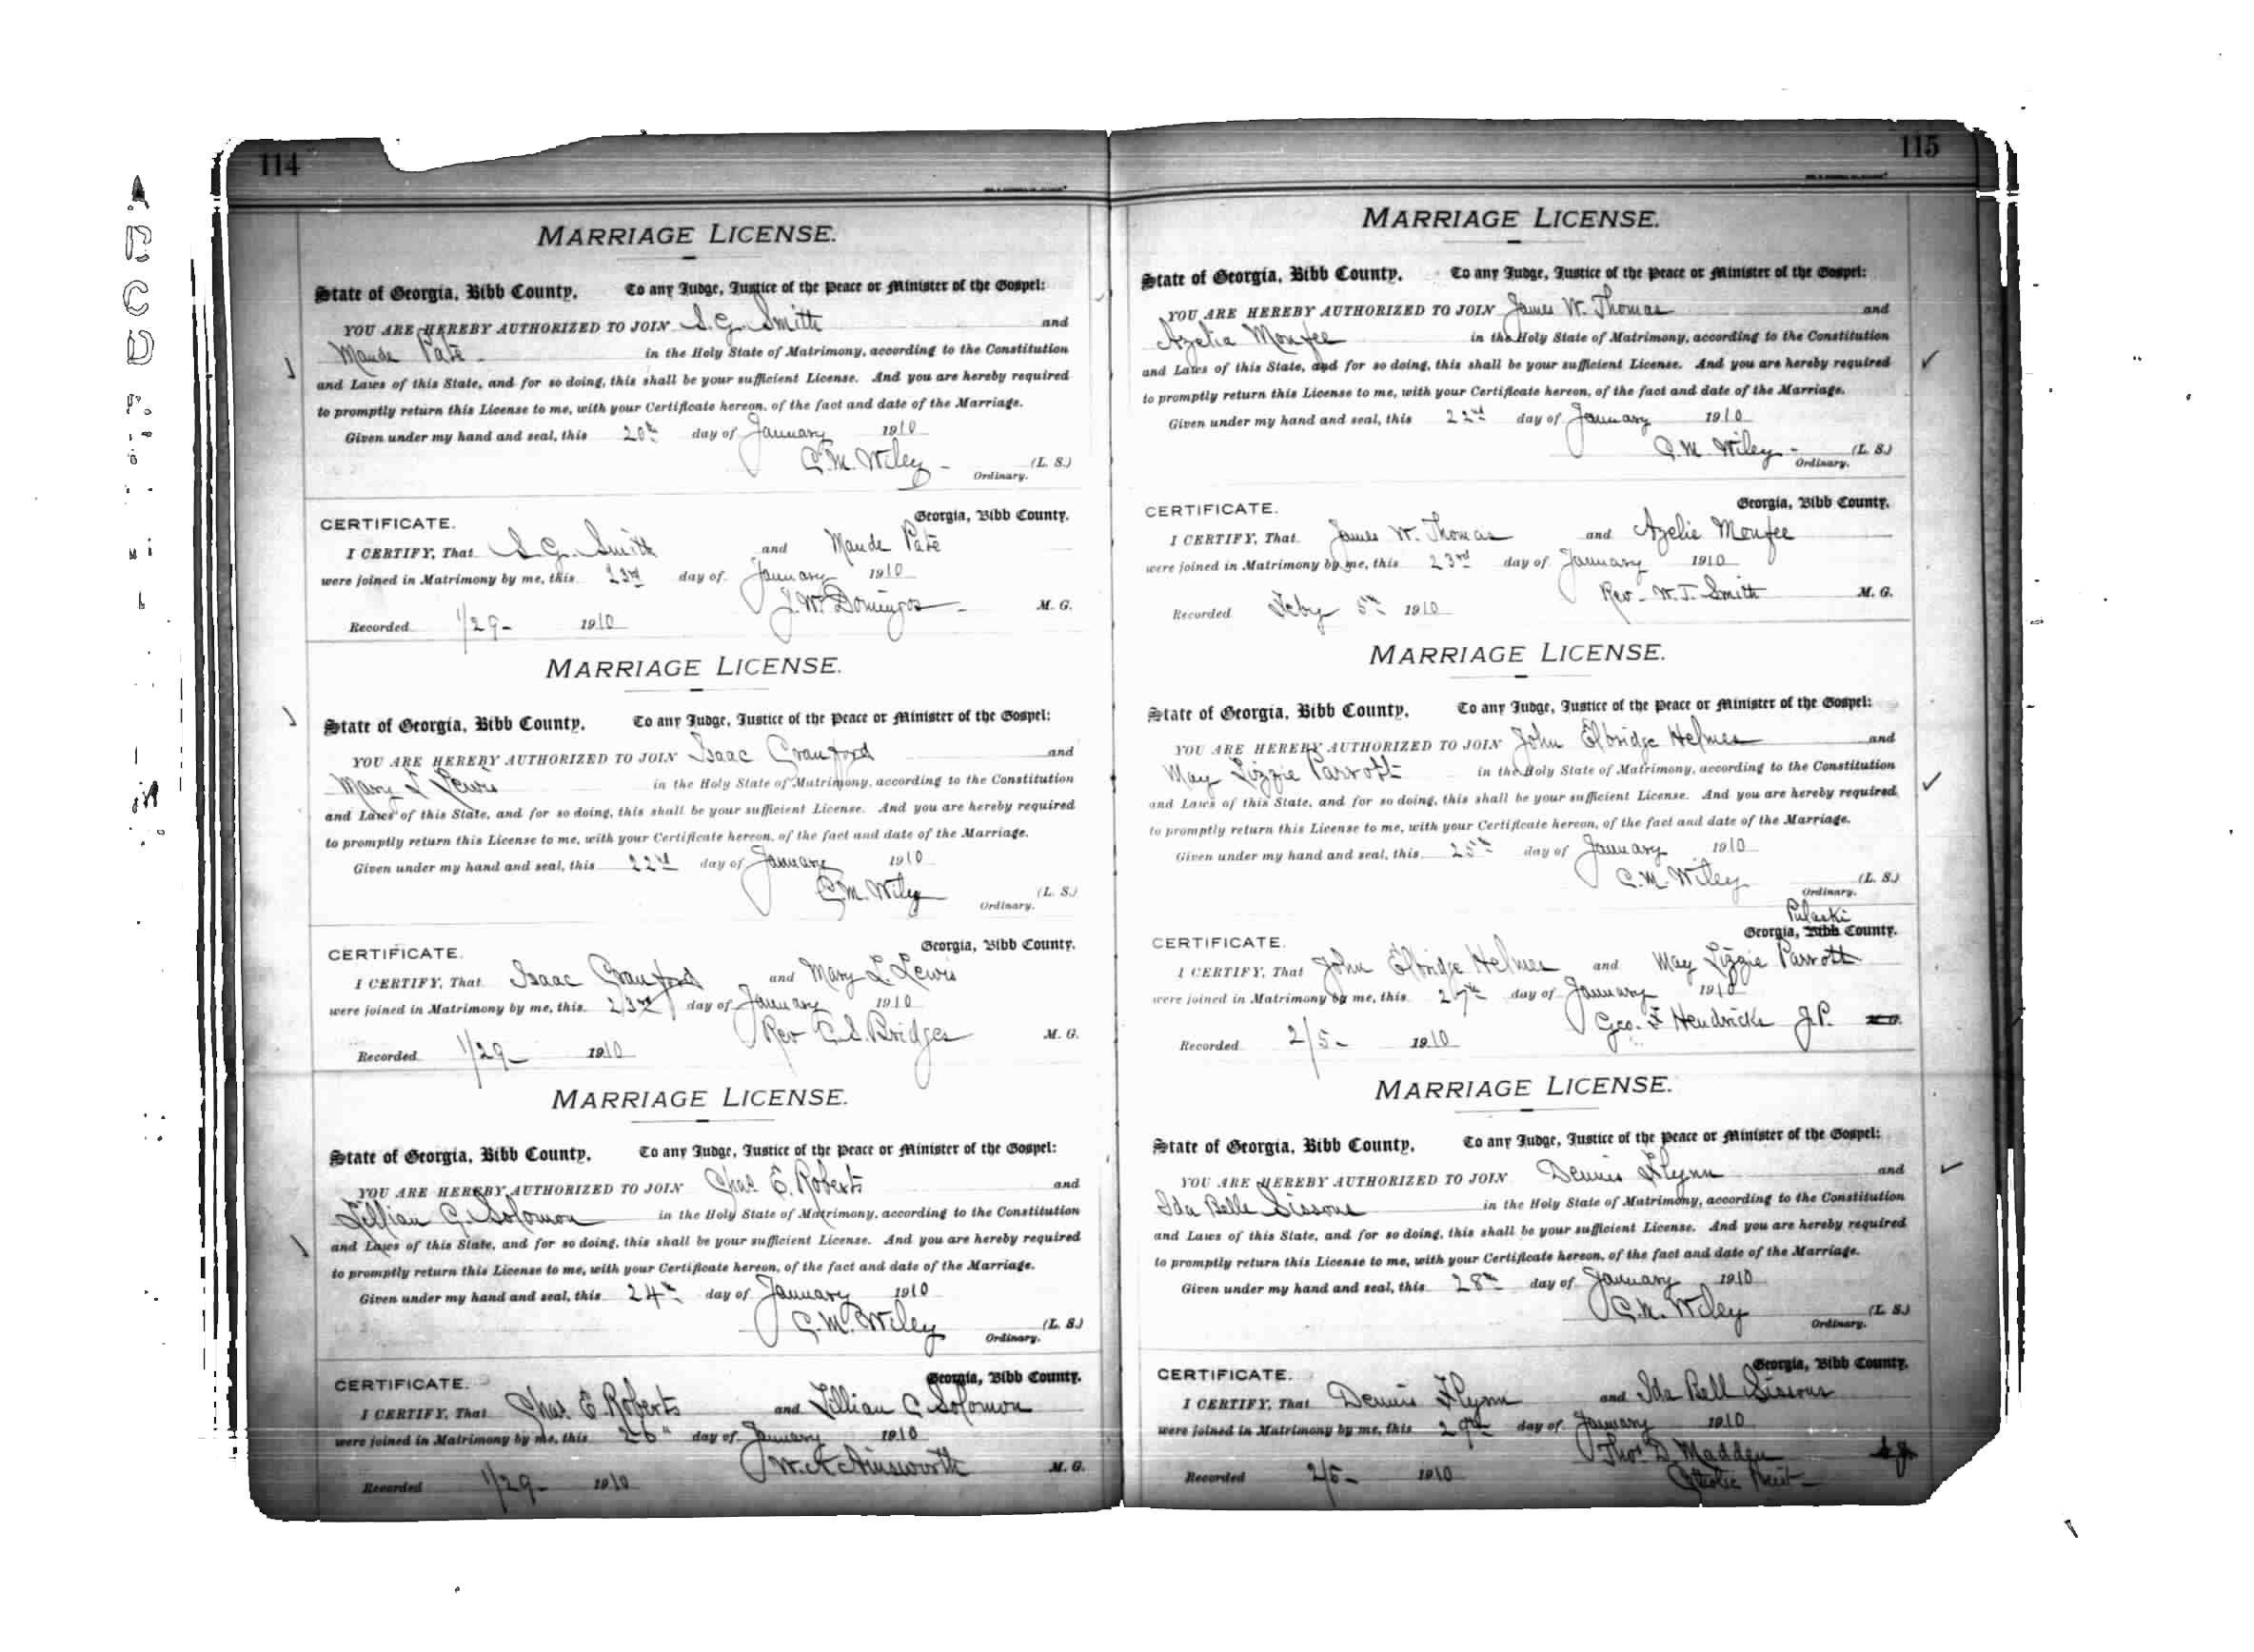 114
MARRIAGE LICENSE.
State of Georgia, Bibb County. To any Judge, Justice of the Peace or Minister of the Gospel:
YOU ARE HEREBY AUTHORIZED TO JOIN S. G. Smith and
Maude Pate in the Holy State of Matrimony, according to the Constitution
and Laws of this State, and for so doing, this shall be your sufficient License. And you are hereby required
to promptly return this License to me, with your Certificate hereon, of the fact and date of the Marriage.
Given under my hand and seal, this 20th day of January 1910
C. M. Wiley (L. S.)
Ordinary.
CERTIFICATE. Georgia, Bibb County.
I CERTIFY, That S. G. Smith and Maude Pate
were joined in Matrimony by me, this 23rd day of January 1910
J. W. Domingos M. G.
Recorded 1/29 1910
MARRIAGE LICENSE.
State of Georgia, Bibb County. To any Judge, Justice of the Peace or Minister of the Gospel:
YOU ARE HEREBY AUTHORIZED TO JOIN Isaac Crawford and
Mary L Lewis in the Holy State of Matrimony, according to the Constitution
and Laws of this State, and for so doing, this shall be your sufficient License. And you are hereby required
to promptly return this License to me, with your Certificate hereon, of the fact and date of the Marriage.
Given under my hand and seal, this 22nd day of January 1910
C. M. Wiley (L. S.)
Ordinary.
CERTIFICATE. Georgia, Bibb County.
I CERTIFY, That Isaac Crawford and Mary L Lewis
were joined in Matrimony by me, this 23rd day of January 1910
Rev C. S. Bridges M. G.
Recorded 1/29 1910
MARRIAGE LICENSE.
State of Georgia, Bibb County. To any Judge, Justice of the Peace or Minister of the Gospel:
YOU ARE HEREBY AUTHORIZED TO JOIN Chas E. Roberts and
Lillian C. Solomon in the Holy State of Matrimony, according to the Constitution
and Laws of this State, and for so doing, this shall be your sufficient License. And you are hereby required
to promptly return this License to me, with your Certificate hereon, of the fact and date of the Marriage.
Given under my hand and seal, this 24th day of January 1910
C. M. Wiley (L. S.)
Ordinary.
CERTIFICATE. Georgia, Bibb County.
I CERTIFY, That Chas. E. Roberts and Lillian C Solomon
were joined in Matrimony by me, this 26" day of January 1910
W. N. Ainsworth M. G.
Recorded 1/29 1910
115
MARRIAGE LICENSE.
State of Georgia, Bibb County. To any Judge, Justice of the Peace or Minister of the Gospel:
YOU ARE HEREBY AUTHORIZED TO JOIN James W. Thomas and
Azelia Moufee in the Holy State of Matrimony, according to the Constitution
and Laws of this State, and for so doing, this shall be your sufficient License. And you are hereby required
to promptly return this License to me, with your Certificate hereon, of the fact and date of the Marriage.
Given under my hand and seal, this 22nd day of January 1910
C. M. Wiley (L. S.)
Ordinary.
CERTIFICATE. Georgia, Bibb County.
I CERTIFY, That James W. Thomas and Azelie Moufee
were joined in Matrimony by me, this 23rd day of January 1910
Rev. W. T. Smith M. G.
Recorded Feby 5th 1910
MARRIAGE LICENSE.
State of Georgia, Bibb County. To any Judge, Justice of the Peace or Minister of the Gospel:
YOU ARE HEREBY AUTHORIZED TO JOIN John Elbridge Helmes and
May Lizzie Parrott in the Holy State of Matrimony, according to the Constitution
and Laws of this State, and for so doing, this shall be your sufficient License. And you are hereby required
to promptly return this License to me, with your Certificate hereon, of the fact and date of the Marriage.
Given under my hand and seal, this 25th day of January 1910
C. M. Wiley (L. S.)
Ordinary.
Pulaski
CERTIFICATE. Georgia, Bibb County.
I CERTIFY, That John Elbridge Helmes and May Lizzie Parrott
were joined in Matrimony by me, this 27th day of January 1910
Geo. F Hendricks J.P. M. G.
Recorded 2/5 1910
MARRIAGE LICENSE.
State of Georgia, Bibb County. To any Judge, Justice of the Peace or Minister of the Gospel:
YOU ARE HEREBY AUTHORIZED TO JOIN Dennis Flynn and
Ida Belle Sissons in the Holy State of Matrimony, according to the Constitution
and Laws of this State, and for so doing, this shall be your sufficient License. And you are hereby required
to promptly return this License to me, with your Certificate hereon, of the fact and date of the Marriage.
Given under my hand and seal, this 28th day of January 1910
C. M. Wiley (L. S.)
Ordinary.
CERTIFICATE. Georgia, Bibb County.
I CERTIFY, That Dennis Flynn and Ida Bell Sissons
were joined in Matrimony by me, this 29th day of January 1910
Thos. D. Madden
Recorded 2/5 1910 Catholic Priest